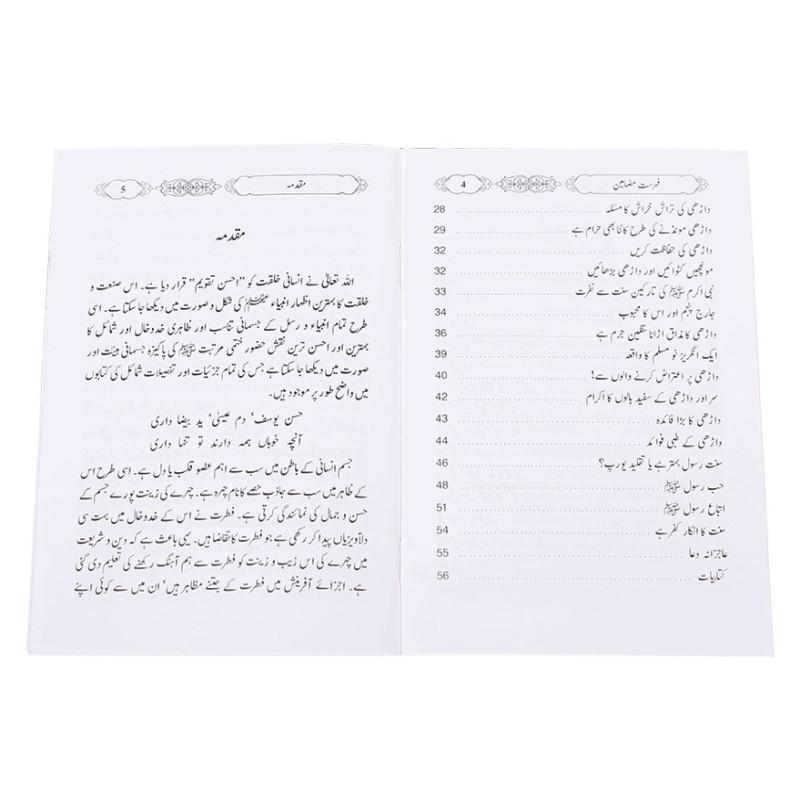 فہرست مضامین 4
داڑھی کی تراش خراش کا مسئلہ 28
داڑھی مونڈنے کی طرح کاٹنا بھی حرام ہے 29
داڑھی کی حفاظت کریں 32
مونچھیں کٹوائیں اور داڑھی بڑھائیں 32
نبی اکرم ﷺ کی تارکین سنت سے نفرت 33
جارج پنجم اور اس کا محبوب 34
داڑھی کا مذاق اڑانا سنگین جرم ہے 36
ایک انگریز نو مسلم کا واقعہ 39
داڑھی پر اعتراض کرنے والوں سے! 40
سر اور داڑھی کے سفید بالوں کا اکرام 42
داڑھی کا بڑا فائدہ 43
داڑھی کے طبی فوائد 44
سنت رسول بہتر ہے یا تقلید یورپ؟ 46
حب رسول ﷺ 48
اتباع رسول ﷺ 51
سنت کا انکار کفر ہے 54
عاجزانہ دعا 55
کتابیات 56
مقدمہ 5
مقدمہ
اللہ تعالیٰ نے انسانی خلقت کو ”احسن تقویم“ قرار دیا ہے۔ اس صنعت و
خلقت کا بہترین اظہار انبیاء کی شکل و صورت میں دیکھا جا سکتا ہے۔ اسی
طرح تمام انبیاء و رسل کے جسمانی تناسب اور ظاہری خدوخال اور شمائل کا
بہترین اور احسن ترین نقش حضور ختمی مرتبت ﷺ کی پاکیزہ جسمانی ہیئت اور
صورت میں دیکھا جا سکتا ہے جس کی تمام جزئیات اور تفصیلات شمائل کی کتابوں
میں واضح طور پر موجود ہیں۔
حسن یوسف‘ دم عیسیٰ‘ ید بیضا داری
آنچہ خوباں ہمہ دارند تو تنہا داری
جسم انسانی کے باطن میں سب سے اہم عضو قلب یا دل ہے۔ اسی طرح اس
کے ظاہر میں سب سے جاذب حصے کا نام چہرہ ہے۔ چہرے کی زینت پورے جسم کے
حسن و جمال کی نمائندگی کرتی ہے۔ فطرت نے اس کے خدوخال میں بہت سی
دلآویزیاں پیدا کر رکھی ہے جو فطرت کا تقاضا ہیں۔ یہی باعث ہے کہ دین و شریعت
میں چہرے کی اس زیب و زینت کو فطرت سے ہم آہنگ رکھنے کی تعلیم دی گئی
ہے۔ اجزائے آفرینش میں فطرت کے جتنے مظاہر ہیں‘ ان میں سے کوئی اپنے